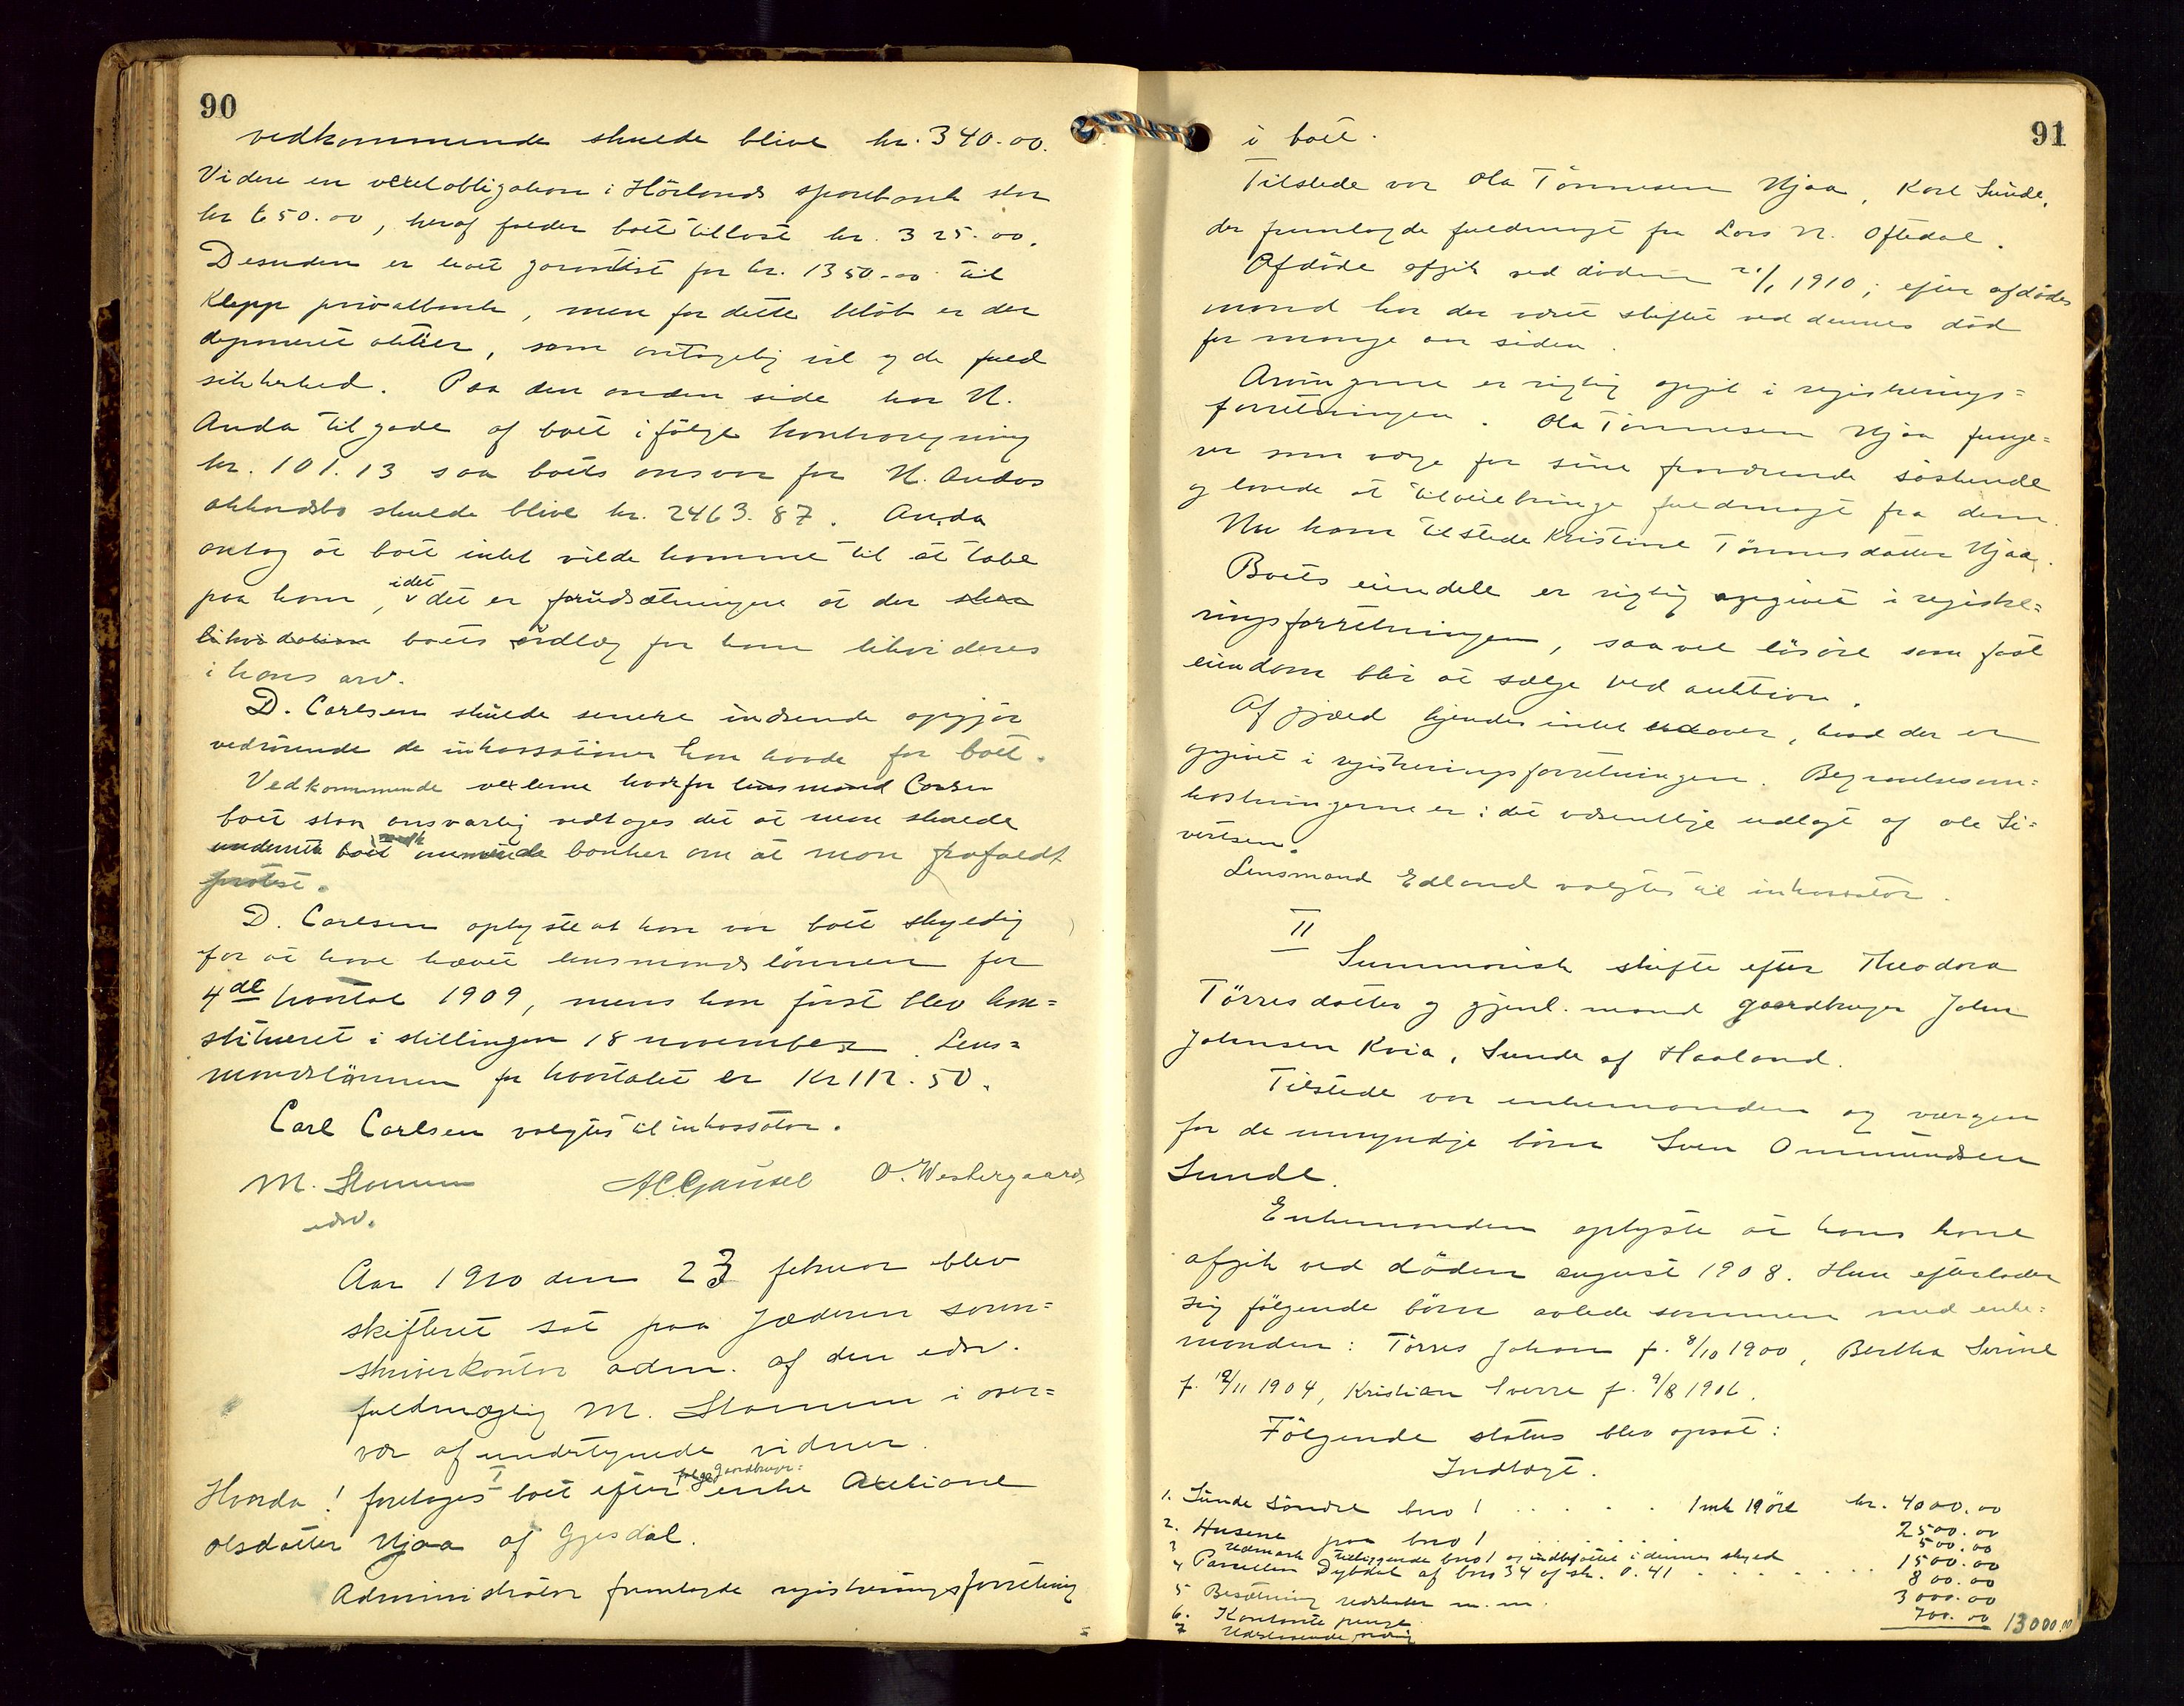 90
vedkommende skulde blive kr. 340.00.
Videre en vexelobligation i Hörlands sparebank stor
kr 650.00, heraf falder boet tillast kr. 325.00.
Desuden er boet garantist for kr. 1350.00 til
Klepp privatbank, men for dette beløb er der
deponeret aktier, som antagelig vil yde fuld
sikkerhed. Paa den anden side har N.
Anda tilgode af boet ifølge kontraregning
kr. 101.13 saa boets ansvar for N. Andas
akkordsbo skulde blive kr. 2463.87. Anda
antog at boet intet vilde komme til at tabe
paa ham, idet det er forudsætningen at der
likvidation boets udlæg for ham likvideres
i hans arv.
D. Carlsen skulde senere indsende opgjør
vedrørende de inkassationer han havde for boet.
Vedkommende vexlerne hvorfor lensmand Carlsen
boet staar ansvarlig vedtoges det at man skulde
underrette boet banker om at man frafaldt
protest.
D. Carlsen oplyste at han var boet skyldig
for at have hævet lensmandslønnen for
4de kvartal 1909, mens han først blev kon=
stitueret i stillingen 18 november. Lens=
mandslønnen for kvartalet er Kr 112.50.
Carl Carlsen valgtes til inkassator.
M. Stamnes A.C.Gausel O. Westergaard
edsv.
Aar 1910 den 23 februar blev
skifteret sat paa Jæderen soren=
skriverkontor adm. af den edsv.
fuldmægtig M. Stamnes i over=
vær af undertegnede vidner.
Hvorda! foretoges I boet efter gaardbruger=
enke Axeliane
Olsdatter Njaa af Gjesdal.
Administrator fremlagde registreringsforretning
91
i boet.
Tilstede var Ola Tønnesen Njaa, Karl Sunde,
der fremlagde fuldmagt fra Lars N. Oftedal.
Afdøde afgik ved døden 21/1 1910; efter afdødes
mand har der været skiftet ved dennes død
for mange aar siden.
Arvingerne er rigtig opgit i registrerings=
forretningen. Ola Tønnesen Njaa funge=
rer som værge for sine fraværende søskende
og lovede at tilveiebringe fuldmagt fra dem.
Nu kom tilstede Kristine Tønnesdatter Njaa.
Boets eiendele er rigtig opgivet i registre=
ringsforretningen, saavel løsøre som fast
eiendom blir at sælge ved auktion.
Af gjæld kjendes intet udover, hvad der er
opgivet i registreringsforretningen. Begravelsesom=
kostningerne er i det væsentlige udlagt af Ole Si=
vertsen.
Lensmand Edland valgtes til inkassator.
II
Summarisk skifte efter Theodora
Tørresdatter og gjenl. mand gaardbruger John
Johnsen Kvia, Sunde af Haaland.
Tilstede var enkemanden og værgen
for de umyndige børn Sven Ommundsen
Sunde.
Enkemanden oplyste at hans kone
afgik ved døden august 1908. Hun efterlader
sig følgende børn avlede sammen med enke=
manden: Tørres Johan f. 8/10 1900, Bertha Serine
f. 12/11 1904, Kristian Sverre f. 9/8 1906.
Følgende status blev opsat:
Indtægt.
1. Sunde søndre bno 1 . . . . . 1 mk 19 øre kr. 4000.00
2. Husene paa bno 1 . . . . . 2500.00
3 Udmark tilliggende bno 1 og indbefattet i dennes skyld 500.00
4 Parcellen Dybdal af bno 34 af sk. 0.41 . . . . . 1500.00
5 Besætning redskaber m.m. 800.00
6. Kontante penge 3000.00
7 Udestaaende 700.00 13000.00